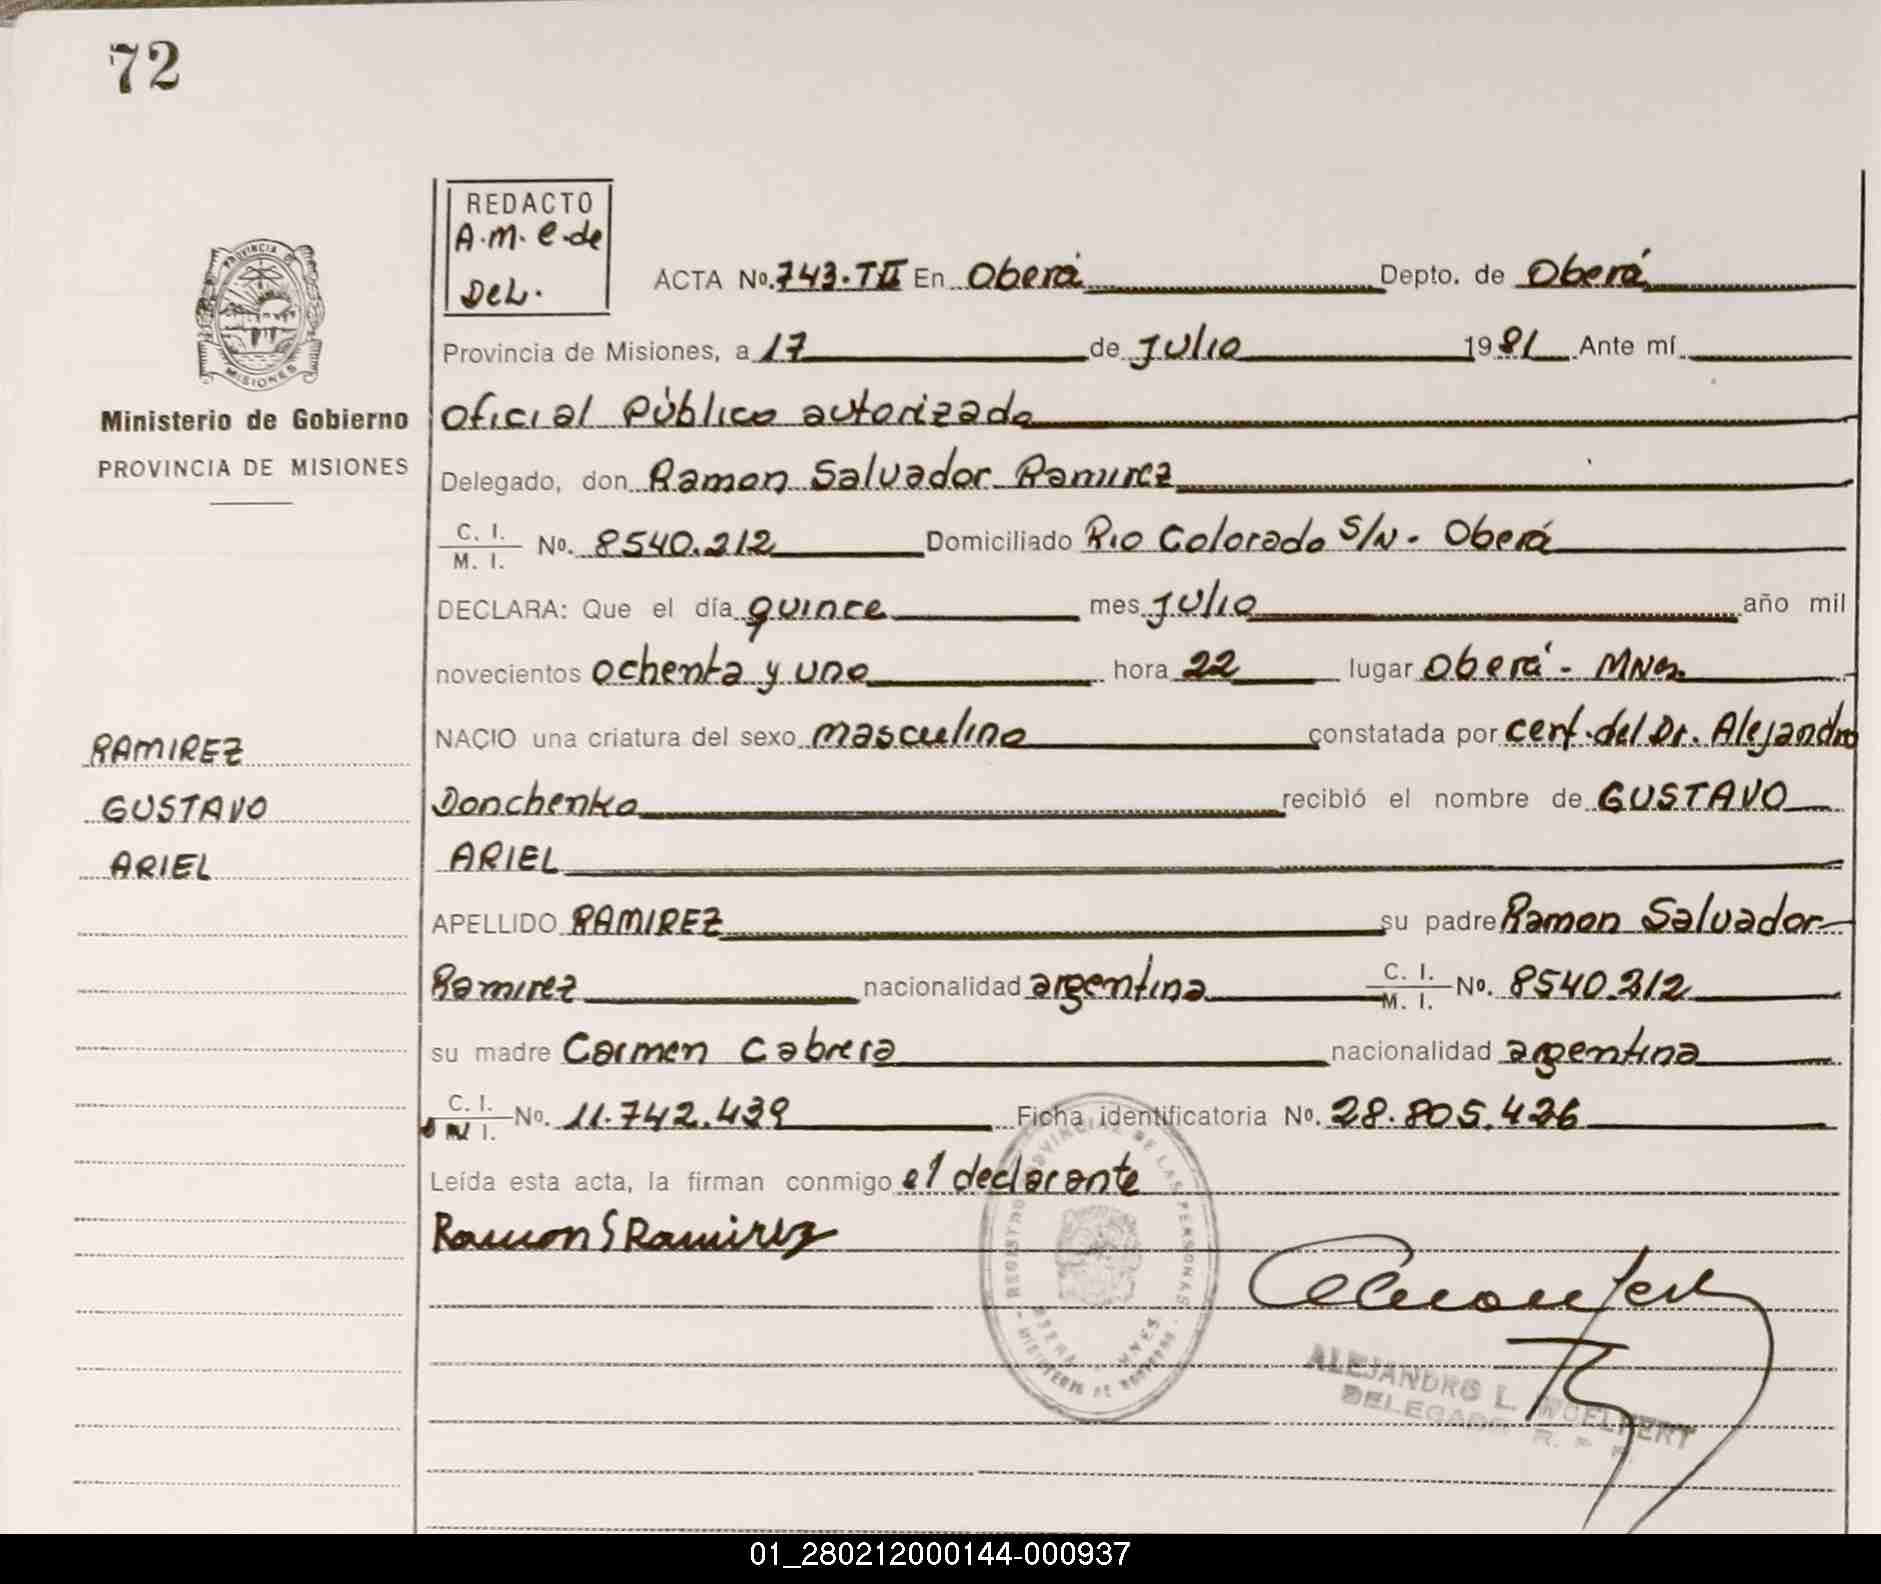 72
REDACTO
A.M. C. de
DEL.
ACTA No. 743-TII En Oberá Depto. de Oberá
Provincia de Misiones, a 17 de Julio 1981 Ante mí
Oficial Público autorizado
Delegado, don Ramon Salvador Ramirez
C. I.
M. I. No. 8540.212 Domiciliado Rio Colorado S/N - Oberá
DECLARA: Que el día quince mes Julio año mil
novecientos ochenta y uno hora 22 lugar Oberá - MNes.
NACIO una criatura del sexo masculino constatada por cert. del Dr. Alejandro
Donchenko recibió el nombre de GUSTAVO
ARIEL
APELLIDO RAMIREZ su padre Ramon Salvador
Ramirez nacionalidad argentina C. I.
M. I. No. 8540.212
su madre Carmen Cabrera nacionalidad argentina
C. I.
No. 11.742.439 Ficha identificatoria No. 28.805.426
Leída esta acta, la firman conmigo el declarante
Ramon S Ramirez
PROVINCIA DE
MISIONES
Ministerio de Gobierno
PROVINCIA DE MISIONES
RAMIREZ
GUSTAVO
ARIEL
REGISTRO PROVINCIAL DE LAS PERSONAS
OBERA - MNES
MINISTERIO DE GOBIERNO
ALEJANDRO L. WOELFERT
DELEGADO R. P. P.
01_280212000144-000937